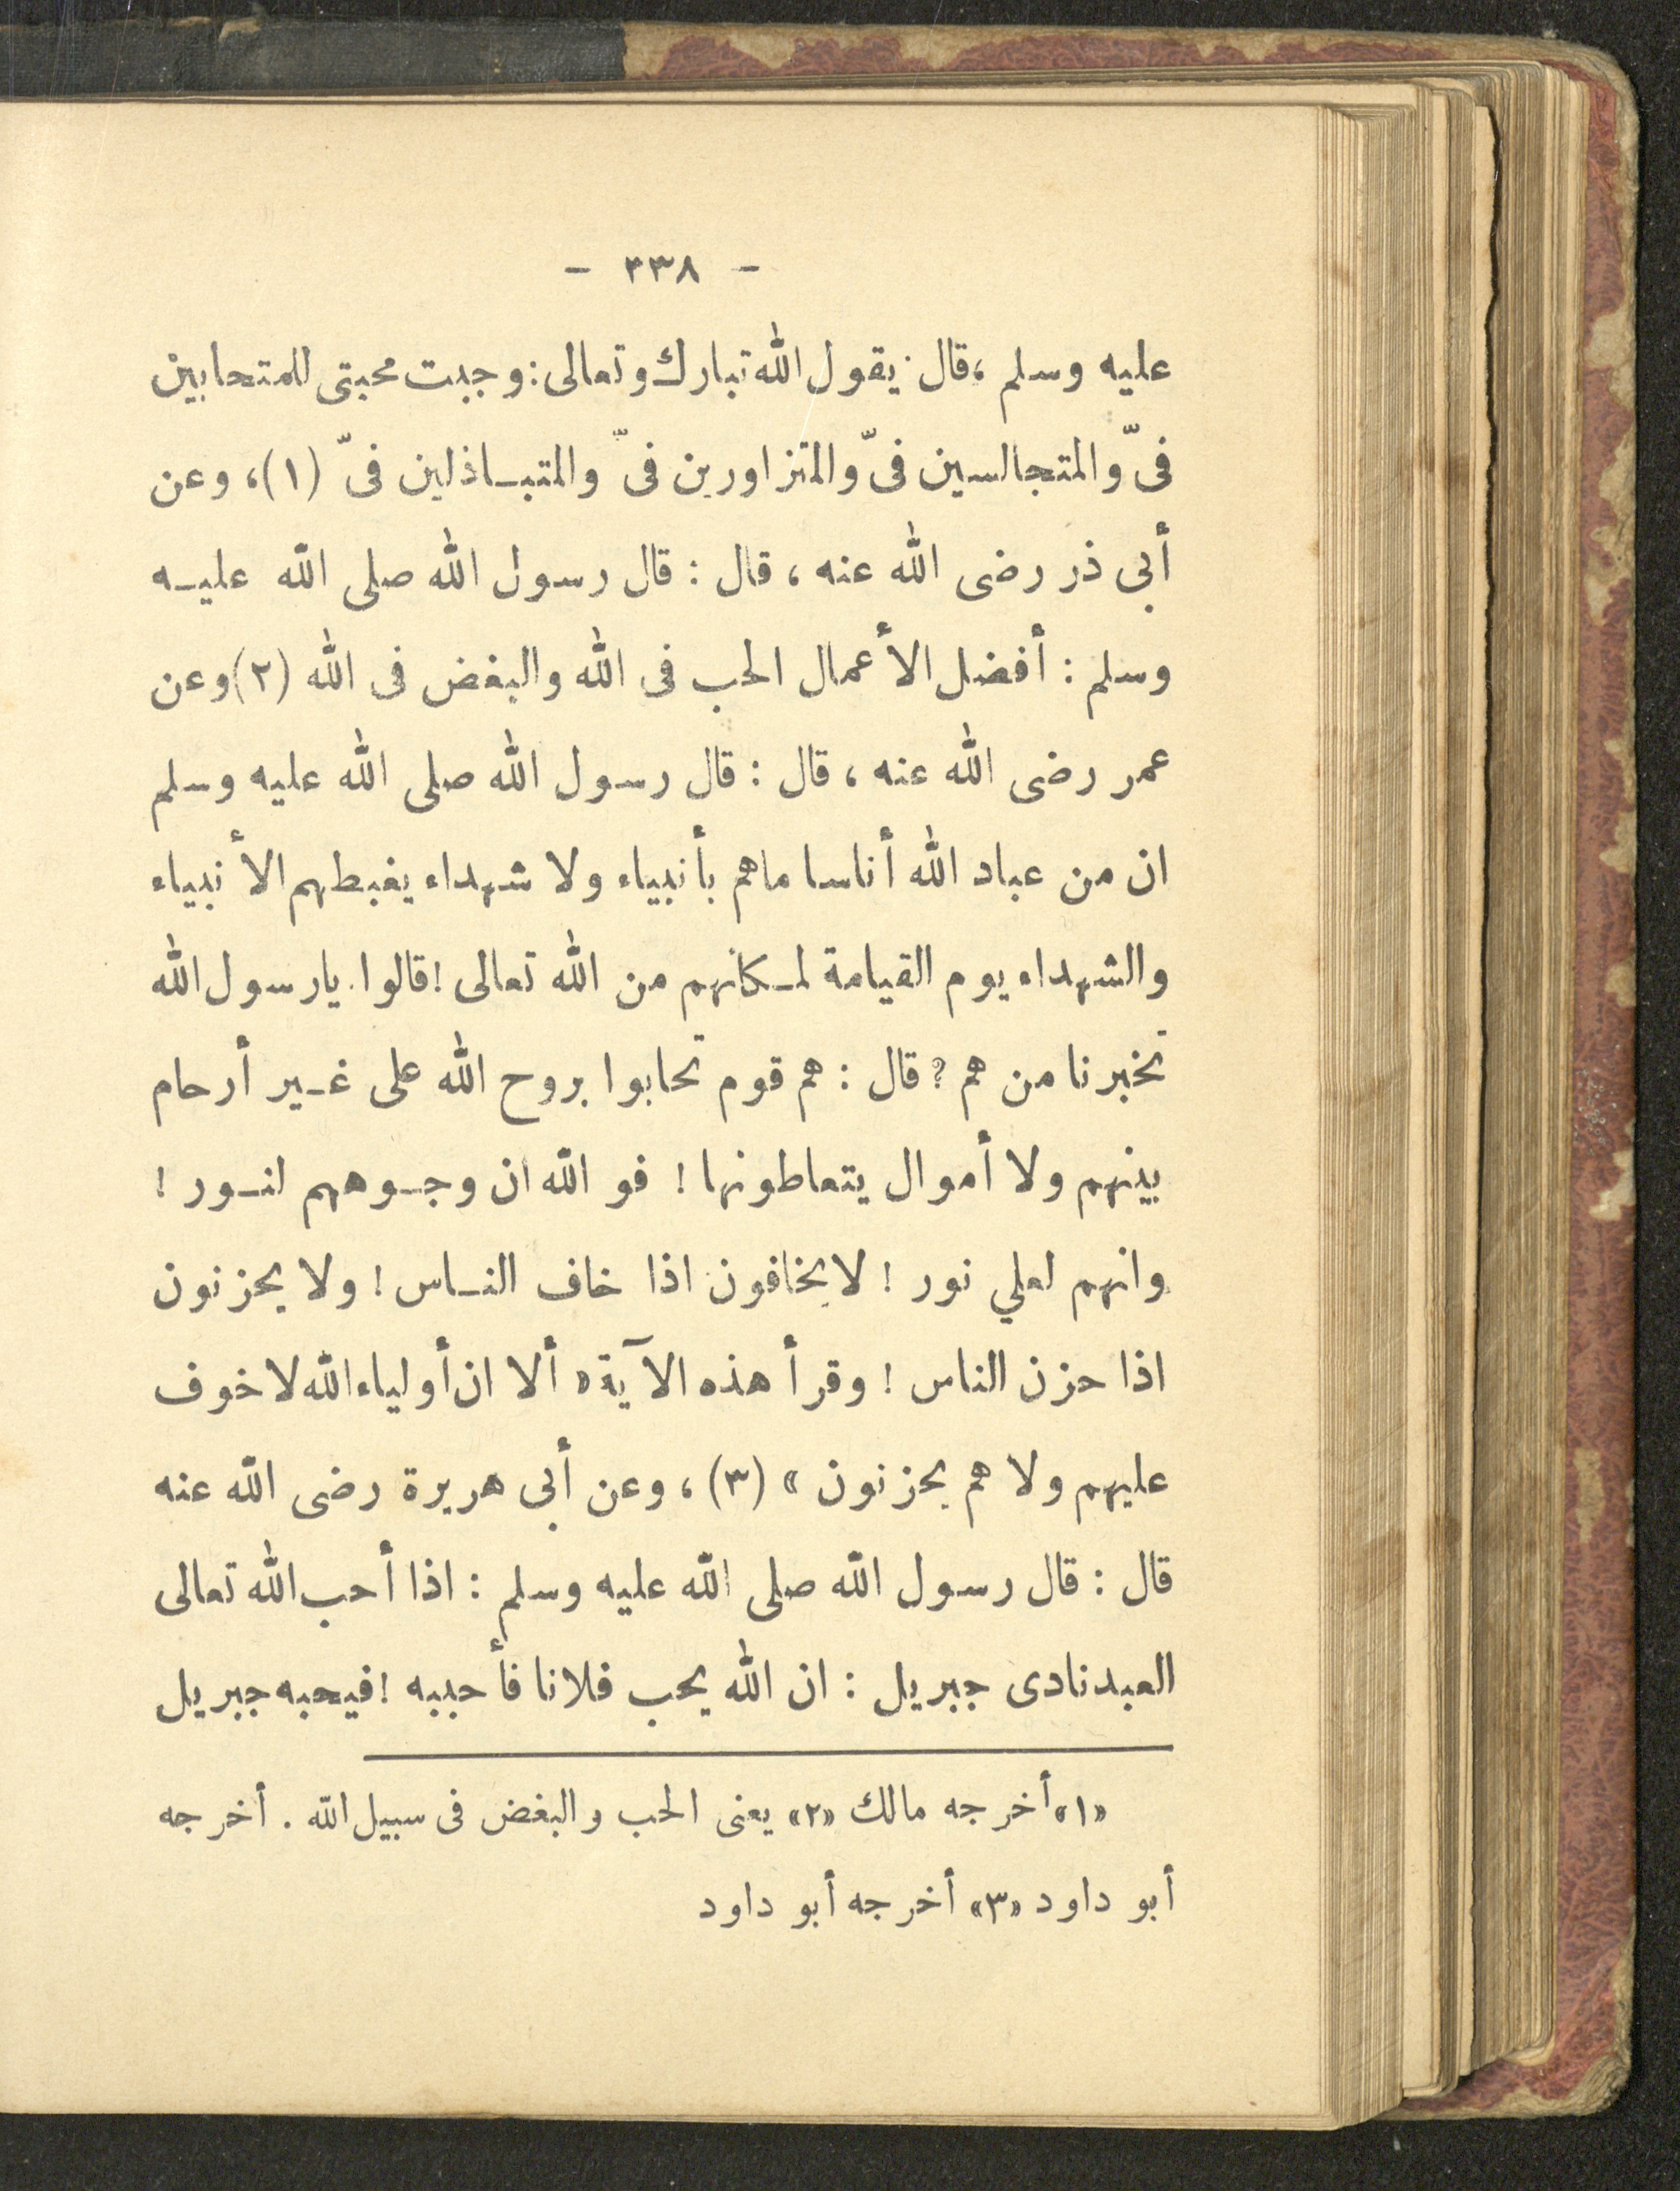 - ٣٣٨ -
عليه وسلم ، قال يقول الله تبارك وتعالى : وجبت محبتى للمتحابين
فىّ والمتجالسين فىّ والمتزاورين فىّ والمتبـاذلين فىّ (١)، وعن
أبى ذر رضى الله عنه ، قال : قال رسول الله صلى الله عليـه
وسلم : أفضل الأعمال الحب فى الله والبغض فى الله (٢) وعن
عمر رضى الله عنه ، قال : قال رسول الله صلى الله عليه وسلم
ان من عباد الله أناسا ماهم بأنبياء ولا شهداء يغبطهم الأنبياء
والشهداء يوم القيامة لمـكانهم من الله تعالى ! قالوا يارسول الله
تخبرنا من هم ? قال : هم قوم تحابوا بروح الله على غـير أرحام
بينهم ولا أموال يتعاطونها ! فو الله ان وجـوههم لنـور !
وانهم لعلي نور ! لا يخافون اذا خاف النـاس ! ولا يحزنون
اذا حزن الناس ! وقرأ هذه الآية « ألا ان أولياء الله لا خوف
عليهم ولا هم يحزنون » (٣) ، وعن أبى هريرة رضى الله عنه
قال : قال رسول الله صلى الله عليه وسلم : اذا أحب الله تعالى
العبد نادى جبريل : ان الله يحب فلانا فأحببه ! فيحبه جبريل
«١» أخرجه مالك «٢» يعنى الحب والبغض فى سبيل الله . أخرجه
أبو داود «٣» أخرجه أبو داود